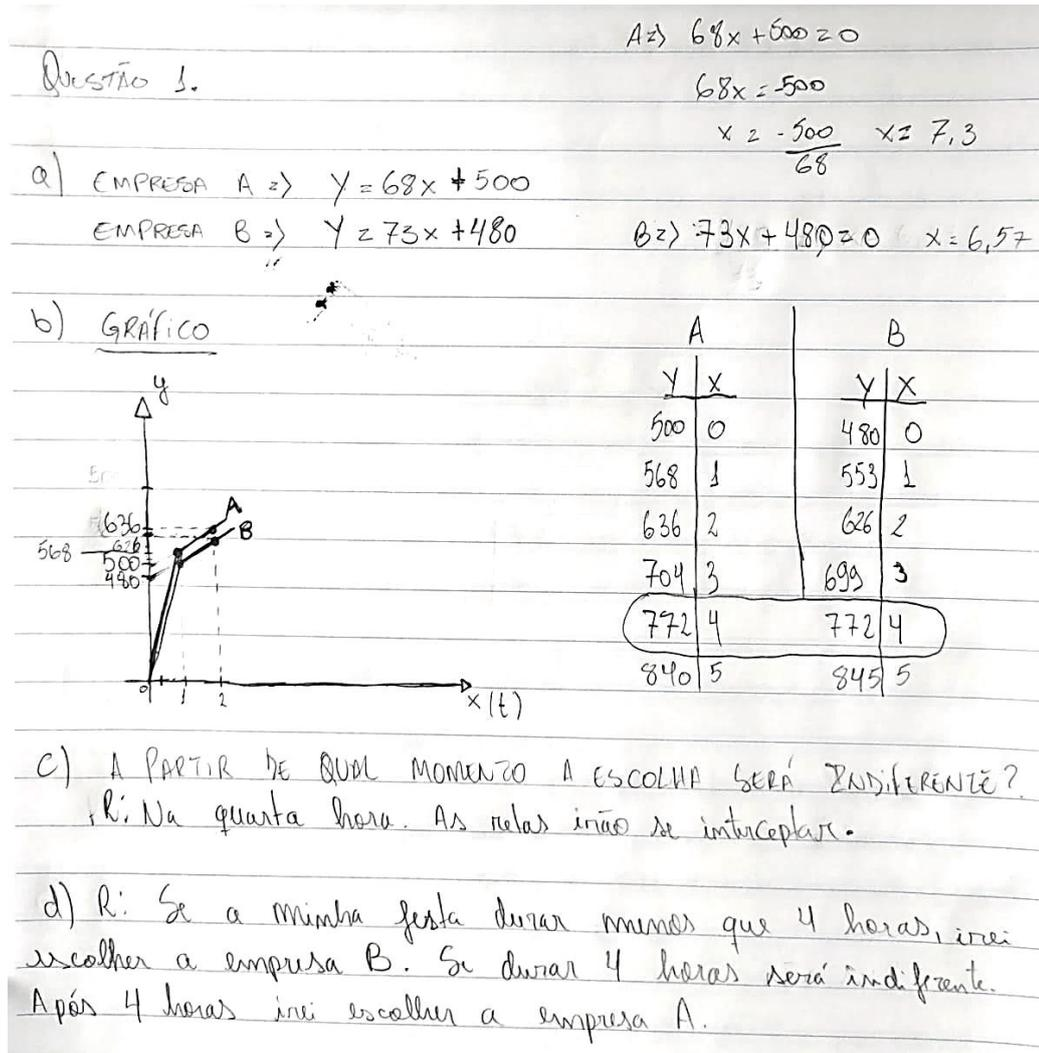 QUESTÃO 1.
A => 68x + 500 = 0
68x = -500
x = -500/68 x = 7,3
a) EMPRESA A => Y = 68x + 500
EMPRESA B => Y = 73x + 480
B => 73x + 480 = 0 x = 6,57
b) GRÁFICO
y
636
626
568
500
480
A
B
0 1 2
x (t)
A B
Y X Y X
500 0 480 0
568 1 553 1
636 2 626 2
704 3 699 3
772 4 772 4
840 5 845 5
c) A PARTIR DE QUAL MOMENTO A ESCOLHA SERÁ INDIFERENTE?
R: Na quarta hora. As retas irão se interceptar.
d) R: Se a minha festa durar menos que 4 horas, irei
escolher a empresa B. Se durar 4 horas será indiferente.
Após 4 horas irei escolher a empresa A.